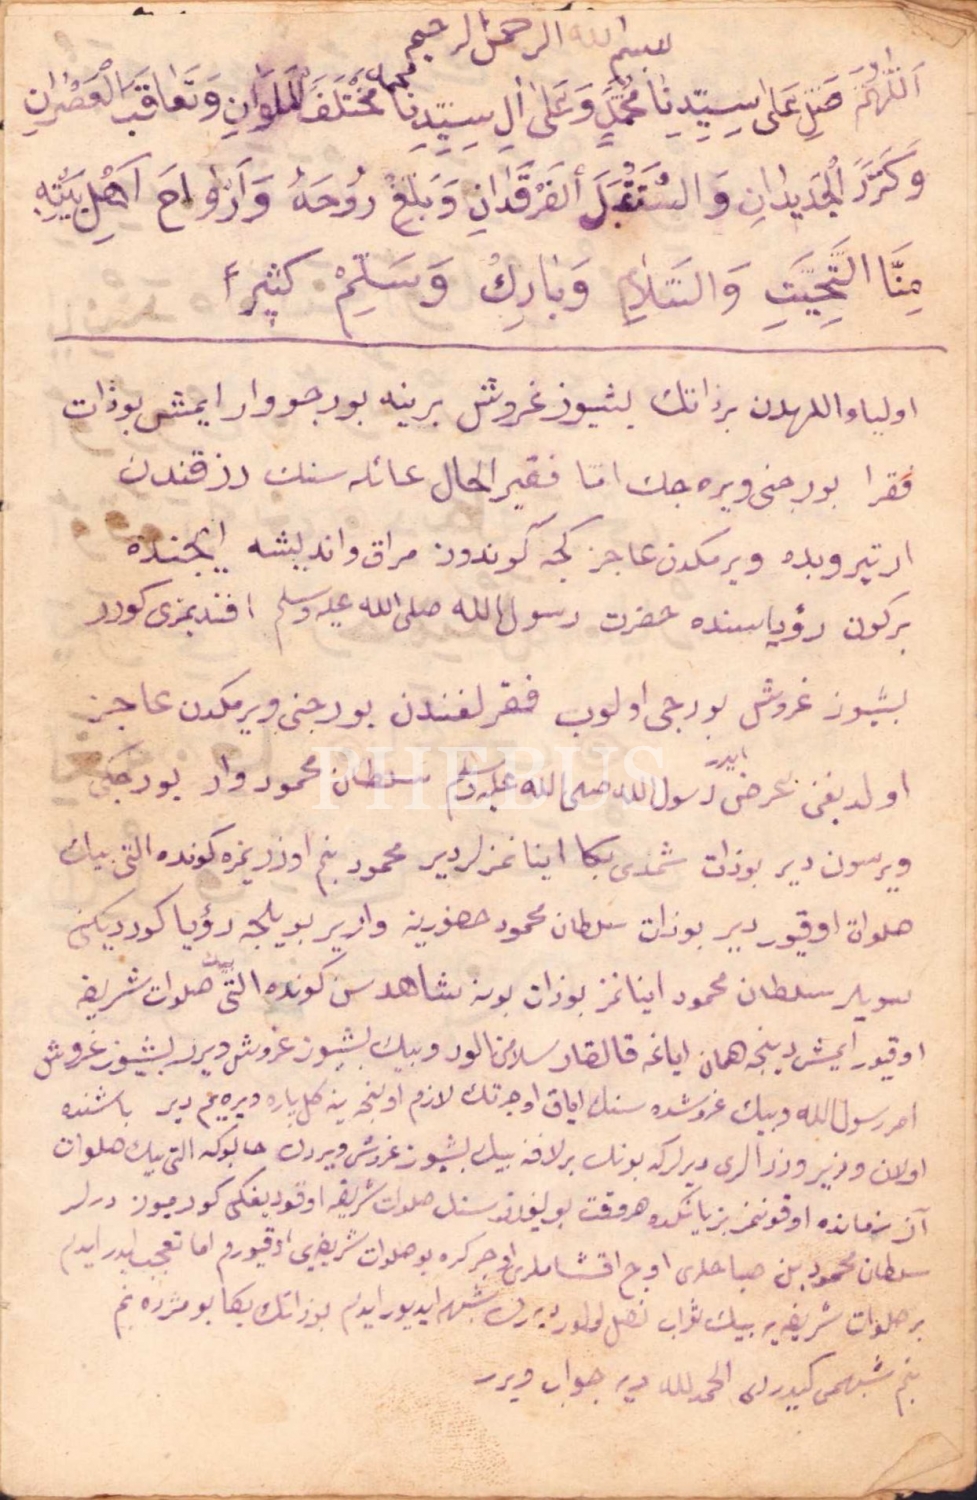 بسم الله الرحمن الرحيم
اَللّٰهُمَّ صَلِّ عَلٰى سَيِّدِنَا مُحَمَّدٍ وَعَلٰى اٰلِ سَيِّدِنَا محمد مَااخْتَلَفَ الْمَلَوَانِ وَتَعَاقَبَ الْعَصْرَانِ
وَكَرَّرَ الْجَدِيدَانِ وَاسْتَقْبَلَ الْفَرْقَدَانِ وَبَلِّغْ رُوحَهُ وَاَرْوَاحَ اَهْلِ بَيْتِهِ
مِنَّا التَّحِيَّةَ وَالسَّلَامَ وَبَارِكْ وَسَلِّمْ كثيراً
اولياء اللهدن بر ذاتك بشيوز غروش برينه بورجو وار ايمش بو ذات
فقرا بورجنى ويره جك اما فقير الحال عائله سنك رزقندن
ارتيروبده ويرمكدن عاجز كجه كوندوز مراق وانديشه ايچنده
بركون رؤياسنده حضرت رسول الله صلى الله عليه وسلم افنديمزى كورر
بشيوز غروش بورجى اولوب فقرلغندن بورجنى ويرمكدن عاجز
اولديغنى عرض ايدر رسول الله صلى الله عليه وسلم سلطان محمود وار بورجكى
ويرسون دير بوذات شمدى بكا اينانمزلر دير محمود بنم اوزريمزه كونده التى بيك
صلوات اوقيور دير بوذات سلطان محمود حضورينه وارير بويلجه رؤيا كورديكنى
سويلر سلطان محمود اينانمز بوذات بوكا شاهد سن كونده التى بيك صلوات شريفه
اوقيور ايمش دينجه همان اياغه قالقار سلامنى الور وبيك بشيوز غروش ويرر بشيوز غروش
امر رسول الله وبيك غروشده سنك اياق اوجرتك لازم اولنجه ينه كل پاره ويره يم دير باشنده
اولان وزير وزرالرى ديرلركه بونك بر لافنه بيك بشيوز غروش ويردك حالبوكه التى بيك صلوات
آز زمانده اوقونمز بز يانكده هر وقت بولنيورز سنك صلوات شريفه اوقوديغكى كورميورز ديرلر
سلطان محمود بن صباحلرى اوچ اقشاملرى اوچر كره بو صلوات شريفه يى اوقيورم اما تعجب ايدر ايدم
بر صلوات شريفه يه بيك ثواب نصل اولور ديردك شبهه ايديور ايدم بوذاتك بكا بو مژده بنم
بنم شبهمى كيدردى الحمد لله ديه جواب ويرر
PHEBUS